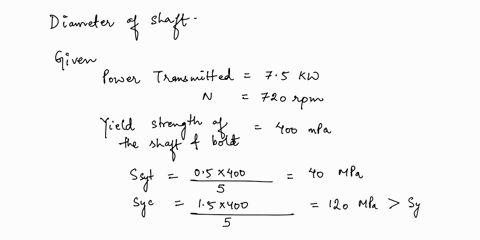 Diameter of shaft.
Given
Power Transmitted = 7.5 KW
N = 720 rpm
Yield strength of the shaft & bolt = 400 mPa
Ssyt = 0.5 x 400 / 5 = 40 MPa
Syc = 1.5 x 400 / 5 = 120 MPa > Sy